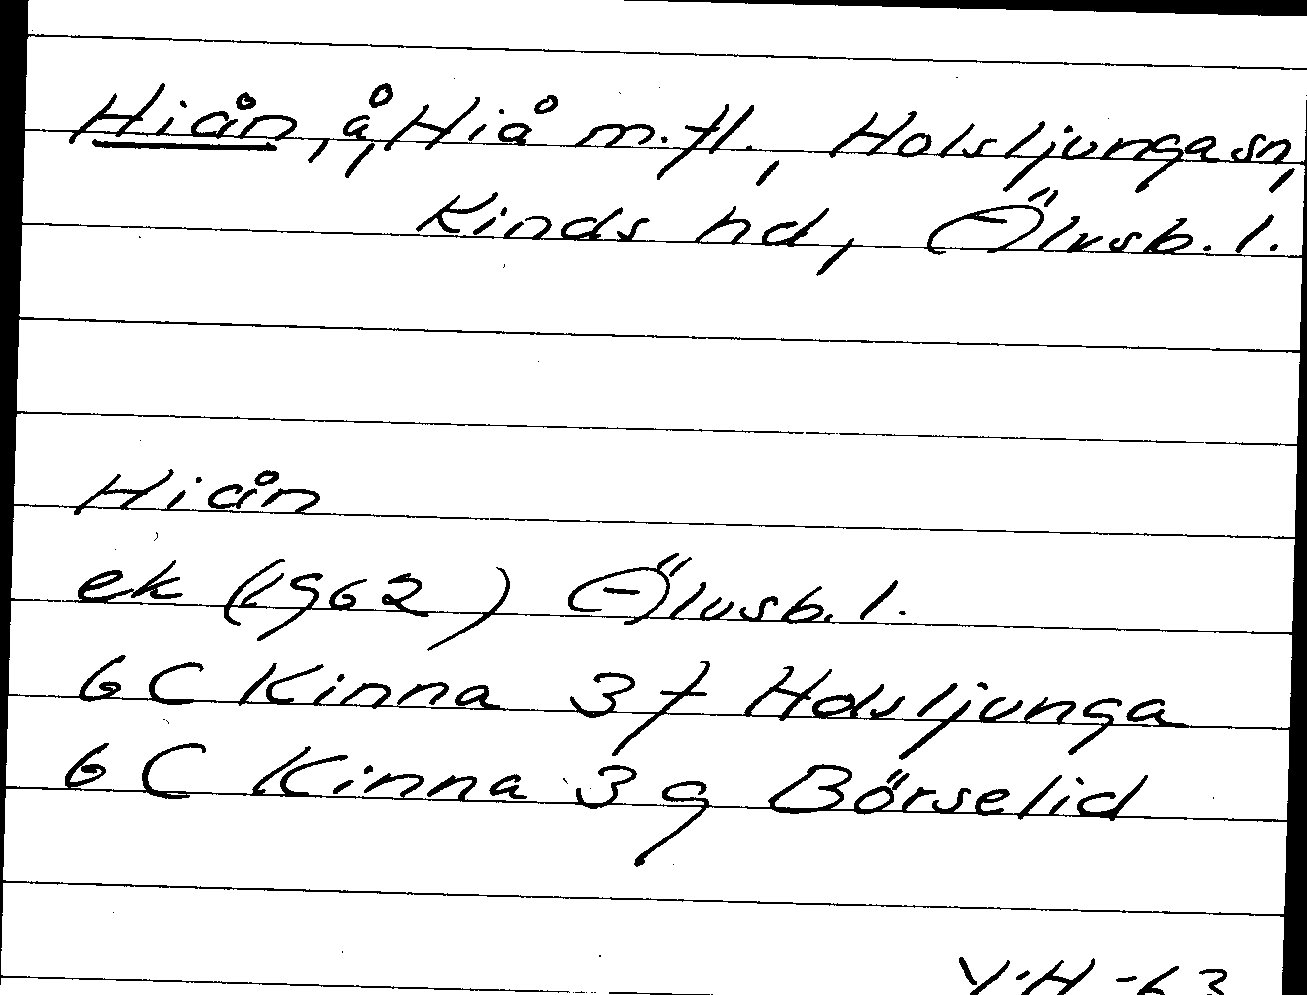 Hiån, å, Hiå m.fl., Holsljunga sn,
Kinds hd, Älvsb. l.
Hiån
ek (1962) Älvsb. l.
6 C Kinna 3 f Holsljunga
6 C Kinna 3 g Börselid
V.H -63